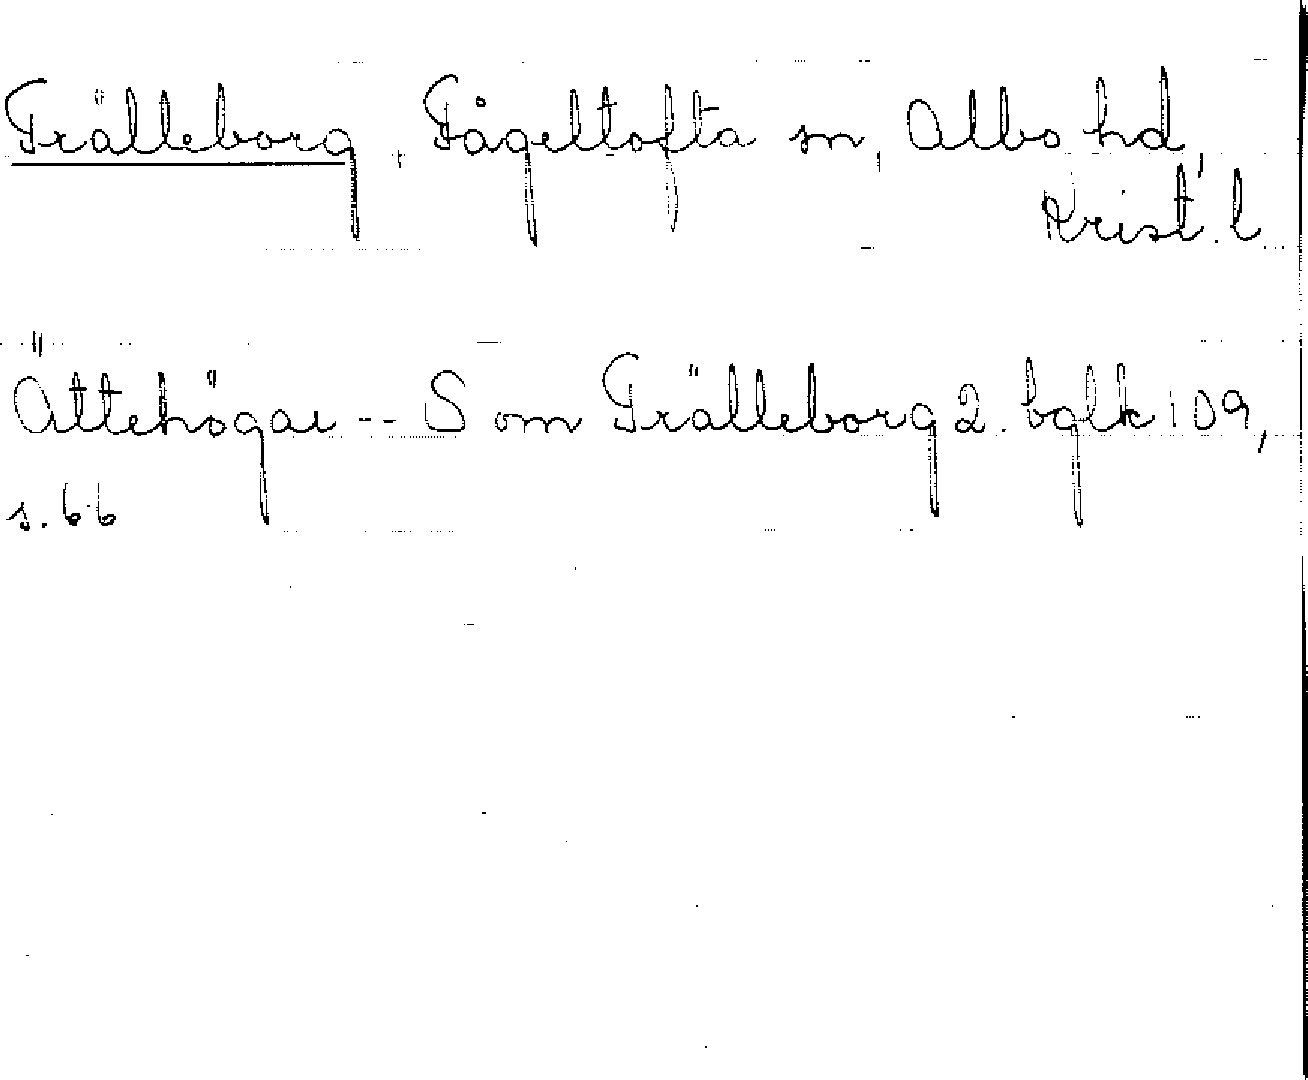 Trälleborg, Fågeltofta sn, Albo hd,
Krist. l
Ättehögar -- S om Trälleborg 2. bglk 109,
s. 66